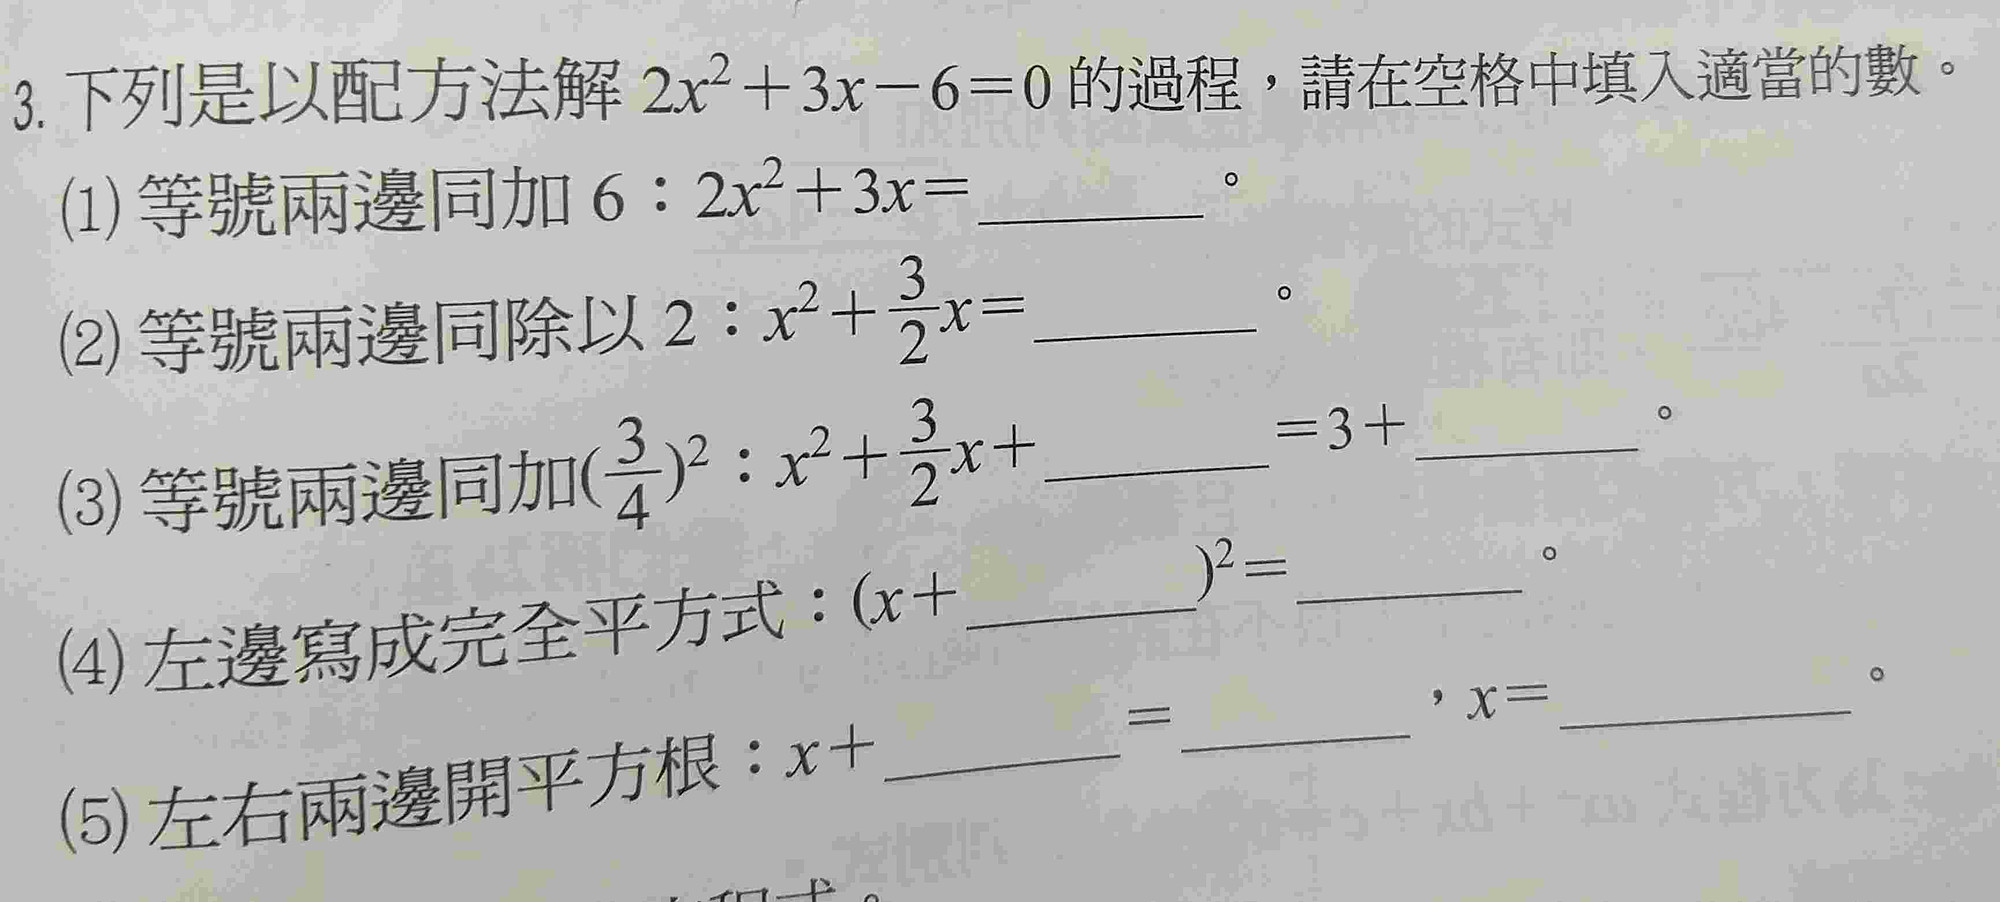 3. 下列是以配方法解 2x²+3x-6=0 的過程，請在空格中填入適當的數。
(1) 等號兩邊同加 6：2x²+3x=________。
(2) 等號兩邊同除以 2：x²+3/2x=________。
(3) 等號兩邊同加(3/4)²：x²+3/2x+________=3+________。
(4) 左邊寫成完全平方式：(x+________)²=________。
(5) 左右兩邊開平方根：x+________=________，x=________。
程式。